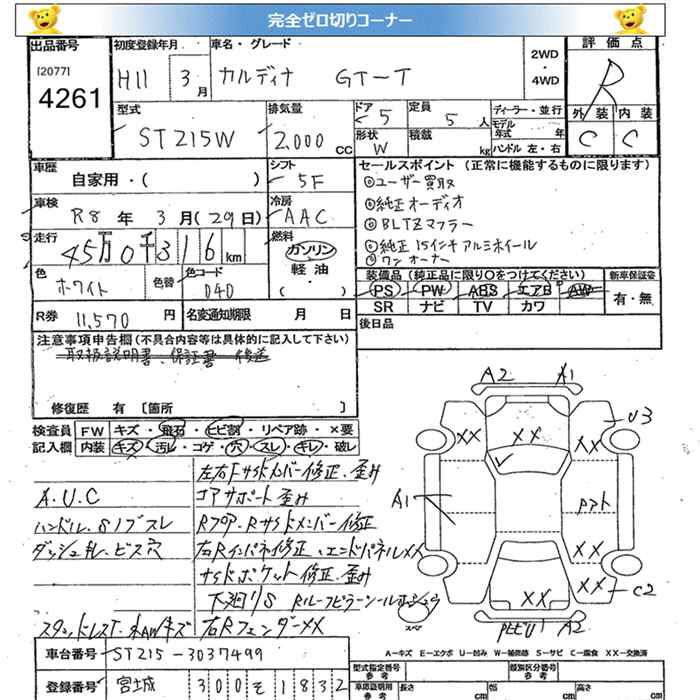 完全ゼロ切りコーナー
出品番号 初度登録年月 車名・グレード 2WD・4WD 評価点
[2077]
4261
H11 3月 カルディナ GT-T R
型式 排気量 ドア 定員 ディーラー・並行 外装 内装
ST215W 2,000cc 5 5人 モデル年式 年 C C
形状 積載 kg ハンドル 左・右
W
車歴 シフト セールスポイント(正常に機能するものに限ります)
自家用・( ) 5F
◎ユーザー買取
車検 冷房 ◎純正オーディオ
R8年 3月(29日) AAC ◎BLTZマフラー
走行 燃料 ◎純正15インチアルミホイール
45万0千316km ガソリン ◎ワンオーナー
軽油・( )
色 色替 色コード 装備品(純正品に限り○をつけてください) 新車保証書
ホワイト 040 PS PW ABS エアB AW 有・無
SR ナビ TV カワ
R券 11,570円 名変通知期限 月 日 後日品
注意事項申告欄(不具合内容等は具体的に記入して下さい)
取扱説明書、保証書 後送
修復歴 有 [箇所 ]
検査員 FW キズ・飛石・ヒビ割・リペア跡・×要
記入欄 内装 キズ・汚レ・コゲ・穴・スレ・キレ・破レ
左右Fサイドメンバー修正、歪み
A.U.C コアサポート歪み
ハンドル、Sノブスレ Rフロア・Rサイドメンバー修正
ダッシュ乱、ビス穴 右Rインパネ修正、エンドパネルXX
サイドポケット修正、歪み
下廻りS
右RフェンダーXX
A2 A1
XX XX XX U3
A1
XX
XX XX C2
A2
スペア
A-キズ E-エクボ U-凹み W-補修跡 S-サビ C-腐食 XX-交換済
車台番号 ST215-3037499 型式指定番号 参考 類別区分番号 参考
登録番号 宮城 300 そ 1832 車庫証明用 参考 長さ cm 幅 cm 高さ cm